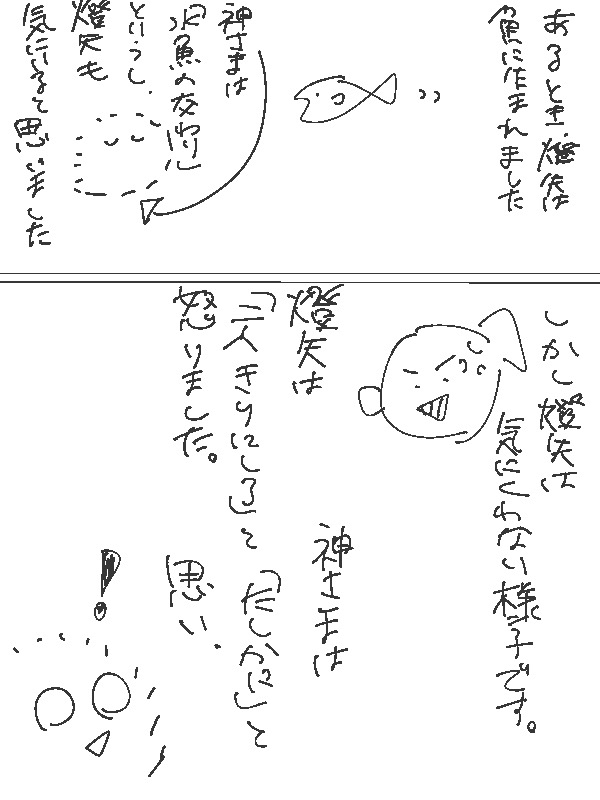 あるとき、燈矢は
魚に生まれました
神さまは
「水魚の交わり」
というし、
燈矢も
気にいると思いました
しかし燈矢は
気にくわない様子です。
燈矢は
「二人きりにしろ」と
怒りました。
神さまは
「たしかに」と
思い、
！